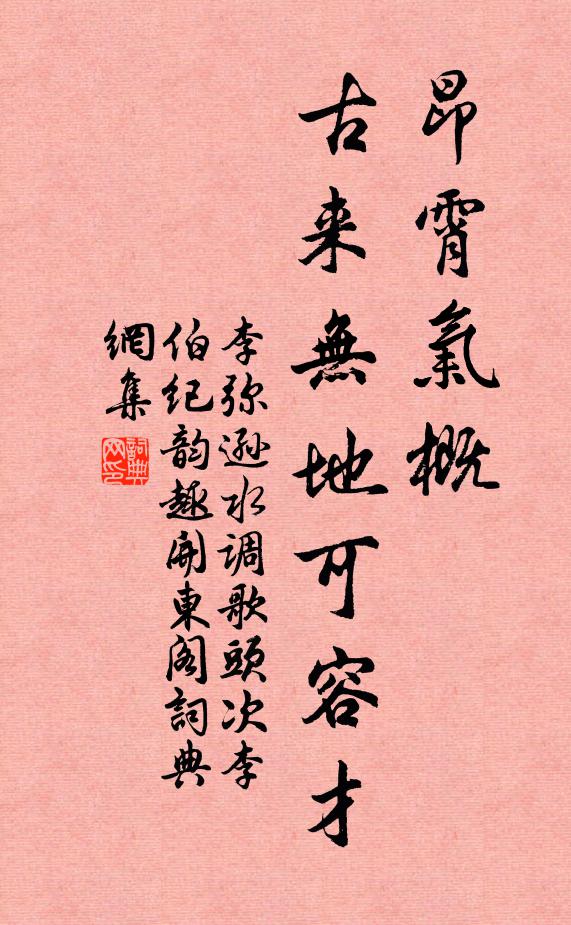 昂霄氣概
古来無地可容才
李弥遜水调歌頭次李
伯纪韵趣開東阁詞典
網集
詞典网印